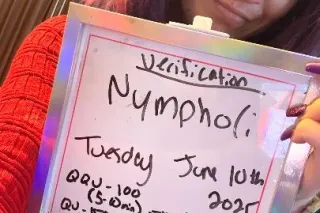 Verification
Nympholi
Tuesday June 10th
2025
QQV-100
(5-10min)
QV-